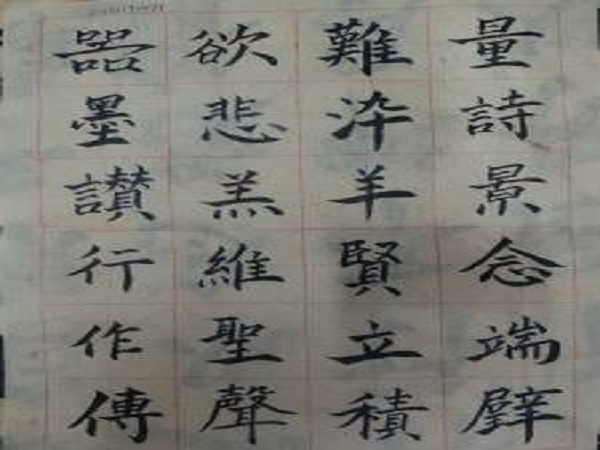 器欲難量
墨悲染詩
讚羔羊景
行維賢念
作聖立端
傳聲積璧